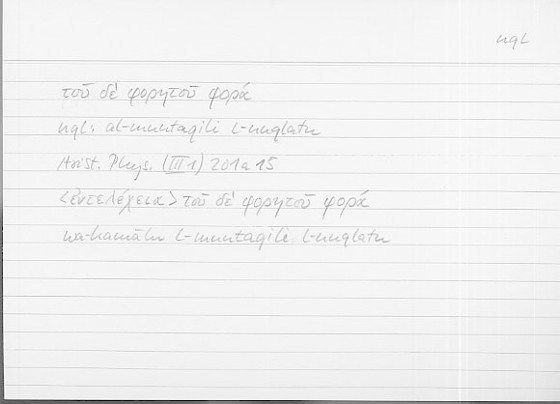 nql
τοῦ δὲ φορητοῦ φορά
nql: al-muntaqili l-nuqlatu
Arist. Phys. (III 1) 201a15
<ἐντελέχεια> τοῦ δὲ φορητοῦ φορά
wa-kamālu l-muntaqili l-nuqlatu